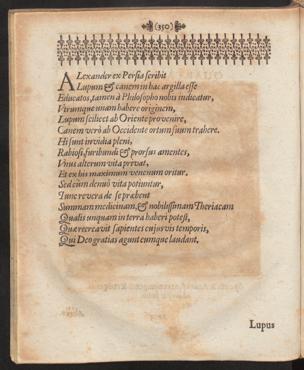 (350)
Alexander ex Persia scribit
Lupum & canem in hac argilla esse
Educatos, tamen à Philosopho nobis indicatur,
Virumque unam habere originem,
Lupum scilicet ab Oriente provenire,
Canem verò ab Occidente ortum suum trahere.
Hi sunt invidia pleni,
Rabiosi, furibundi & prorsus amentes,
Unus alterum vita privat,
Et ex his maximum venenum oritur.
Sed cùm denuò vita potiuntur,
Tunc revera de se præbent
Summam medicinam, & nobilissimam Theriacam
Qualis unquam in terra haberi potest,
Quæ recreavit sapientes cujusvis temporis,
Qui Deo gratias agunt eumque laudant.
Lupus